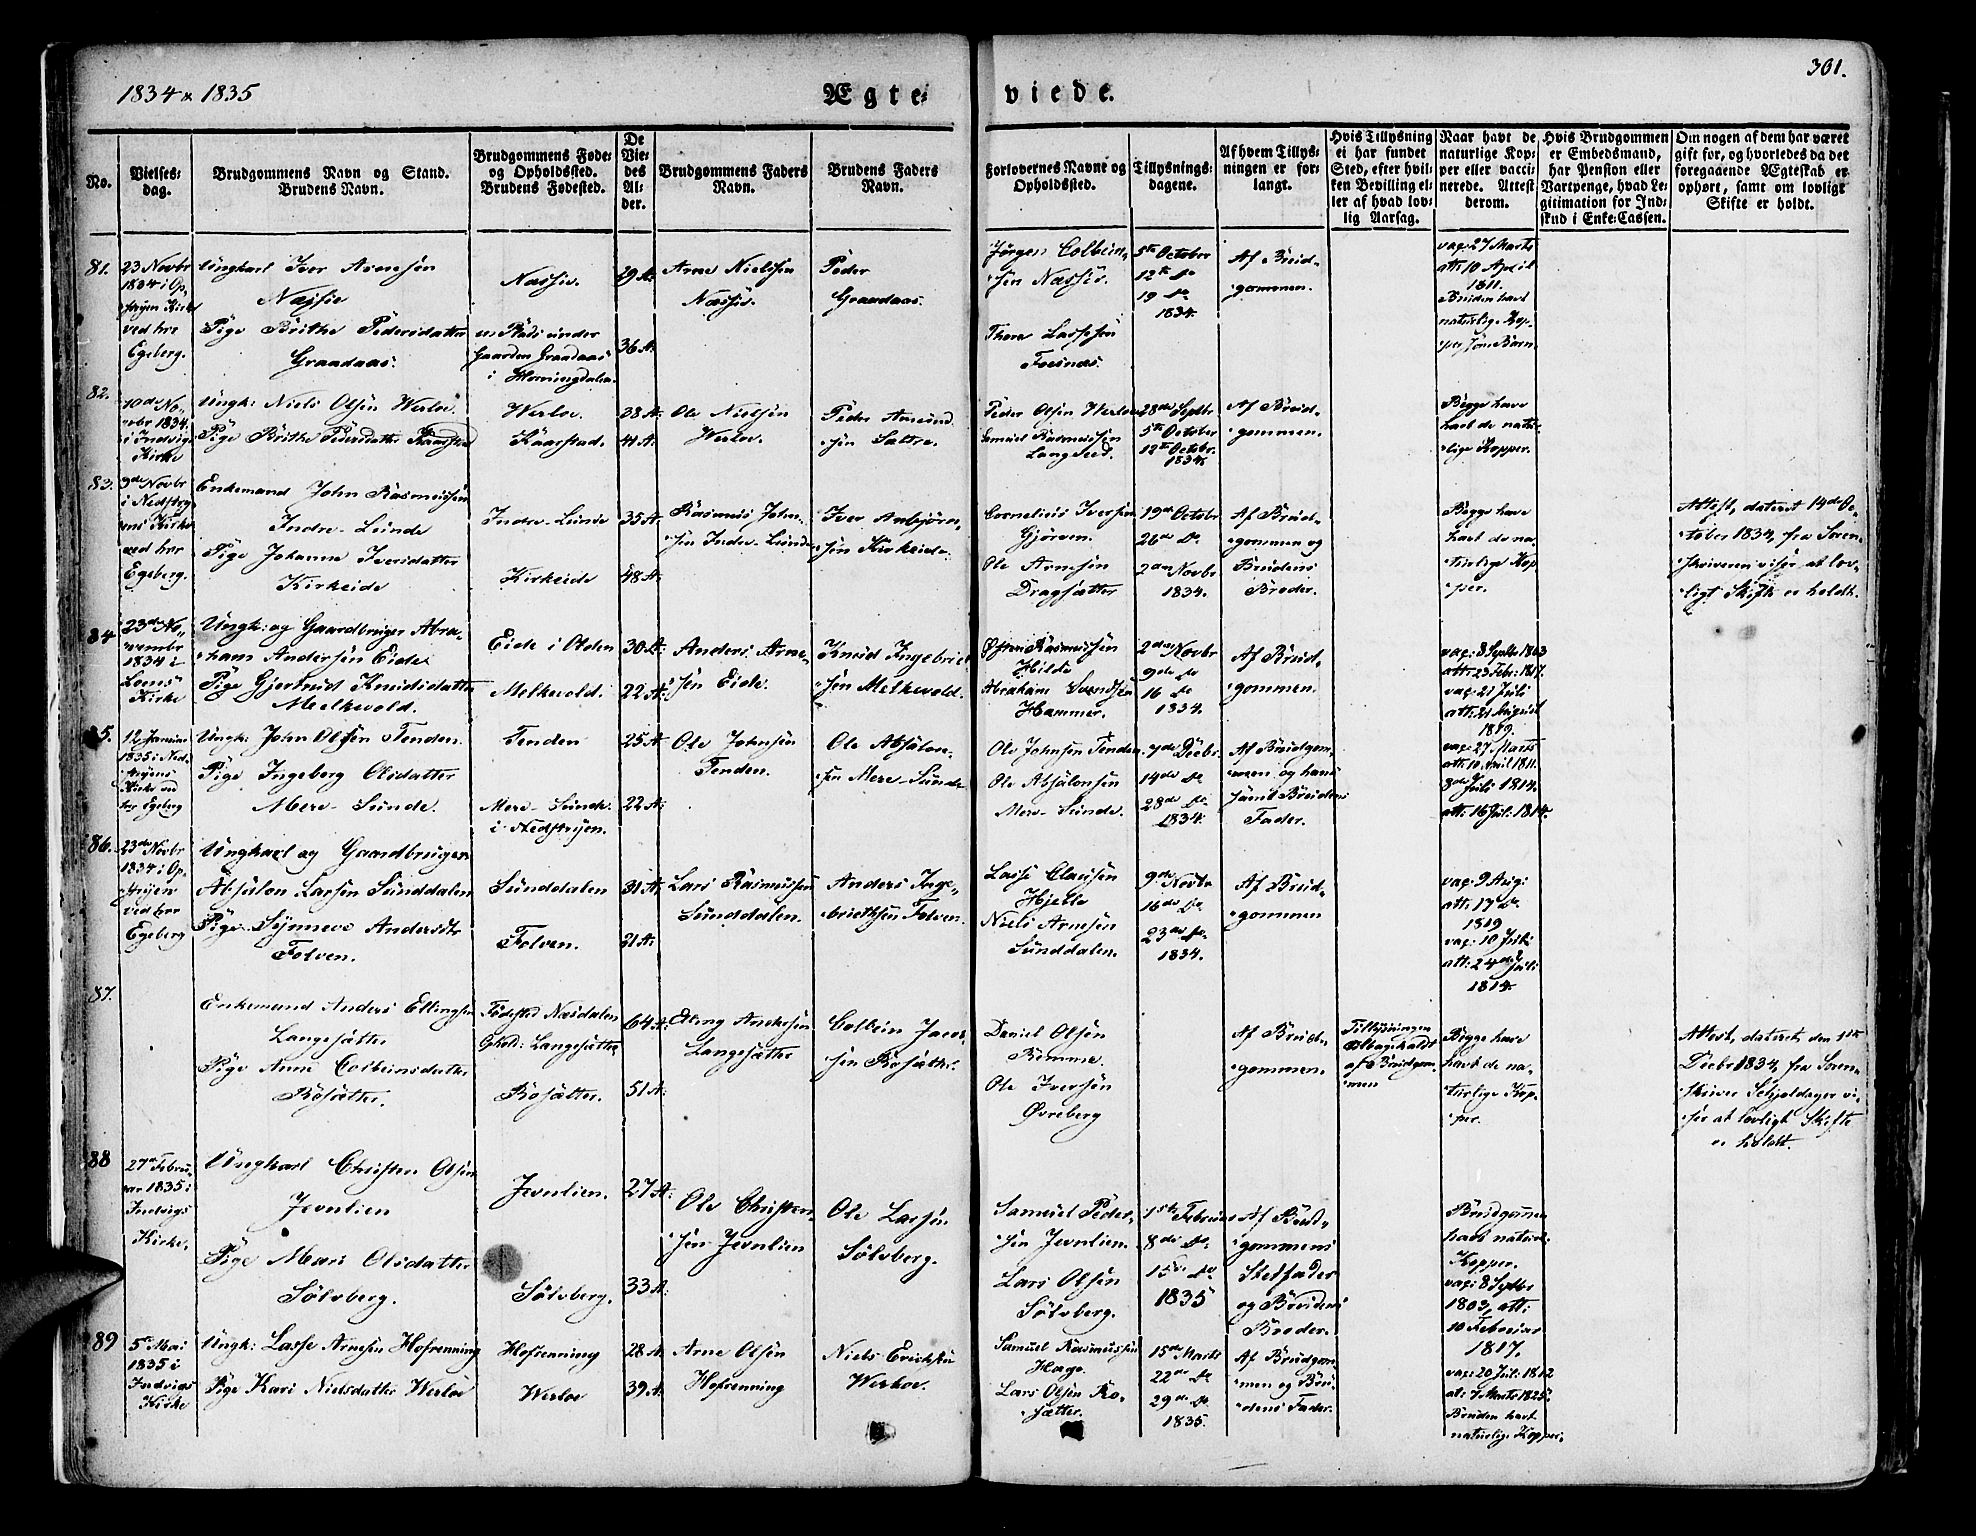 1834 & 1835
Ægte-
viede.
301.
No.
Vielses-
dag.
Brudgommens Navn og Stand.
Brudens Navn.
Brudgommens Føde-
og Opholdssted.
Brudens Fødested.
De
Vie-
des
Al-
der.
Brudgommens Faders
Navn.
Brudens Faders
Navn.
Forlovernes Navne og
Opholdssted.
Tillysnings-
dagene.
Af hvem Tillys-
ningen er for-
langt.
Hvis Tillysning
ei har fundet
Sted, efter hvil-
ken Bevilling el-
ler af hvad lov-
lig Aarsag.
Naar havt de
naturlige Kop-
per eller vacci-
nerede. Attest
derom.
Hvis Brudgommen
er Embedsmand,
har Pension eller
Vartpenge, hvad Le-
gitimation for Ind-
skud i Enke-Cassen.
Om nogen af dem har været
gift for, og hvorledes da det
foregaaende Ægteskab er
ophørt, samt om lovligt
Skifte er holdt.
81.
23 Novbr
1834 i Op-
stryen Kirke
ved hrr
Egeberg.
Ungkarl Iver Arnesen
Næssie
Pige Brithe Pedersdatter
Graadaas.
Næssie.
en Plads under
Gaarden Graadaas
i Horningdalen.
29 A.
36 A.
Arne Nielsen
Næssie.
Peder
Graadaas.
Jørgen Colbein-
sen Næssie.
Thore Lassesen
Fosnæs.
5te October
12te do
19 do
1834.
Af Brud-
gommen.
vac: 27 Marts
att: 10 April
1811.
Bruden havt
naturlige Kop-
per som Barn.
82.
10de No-
vbr 1834
i Indvigs
Kirke
Ungk: Niels Olsen Werloe.
Pige Brithe Pedersdatter Kaarstad
Werloe.
Kaarstad.
28 A.
41 A.
Ole Nielsen
Werloe.
Peder Amund-
sen Sætre.
Peder Olsen Werloe
Samuel Rasmussen
Langesæd.
28de Septbr
5te October
12te Octobr.
1834.
Af Brud-
gommen.
Begge have
havt de natur-
lige Kopper.
83.
9de Novbr
i Nedstry-
ens Kirke
ved hrr
Egeberg.
Enkemand John Rasmussen
Indre-Lunde
Pige Johanne Iversdatter
Kirkeide
Indre-Lunde
Kirkeide
35 A.
48 A.
Rasmus John-
sen Indre-Lunde
Iver Anbjørn-
sen Kirkeide.
Cornelius Iversen
Gjørven.
Ole Arnesen
Dragsætter
19de Octobr
26de do
2den Novbr
1834.
Af Brud-
gommen og
Brudens
Broder.
Begge have
havt de na-
turlige Kop-
per.
Attest, dateret 14de Oc-
tober 1834, fra Soren-
skriveren viser at lov-
ligt Skifte er holdt.
84
23de No-
vembr
1834 i
Loens
Kirke
Ungk: og Gaardbruger Abra-
ham Andersen Eide.
Pige Gjertrud Knudsdatter
Melkevold.
Eide i Olden
Melkevold.
30 A.
22 A.
Anders Arne-
sen Eide.
Knud Ingebrict-
sen Melkevold.
Østen Rasmussen
Hilde
Abraham Svendsen
Hammer.
2den Novbr
9de do
16 do
1834.
Af Brud-
gommen.
vac: 8 Septbr 1803
att: 23 Febr: 1817.
vac: 21 Juli
att: 21 August
1819.
85.
12 Januar
1835 i Ned-
stryens
Kirke ved
hrr Egeberg
Ungk: John Olsen Tenden.
Pige Ingeberg Olsdatter
Mere-Sunde.
Tenden
Mere-Sunde
i Nedstryen.
25 A
22 A.
Ole Johnsen
Tenden.
Ole Absalon-
sen Mere-Sunde
Ole Johnsen Tenden.
Ole Absalonsen
Mere-Sunde.
7de Decbr
14de do
28de do
1834.
Af Brudgom-
men og hans
samt Brudens
Fader.
vac: 27 Marts
att: 10 April 1811.
8de Juli 1814.
att: 16 Jul: 1814.
86.
23de Novbr
1834 i Op-
stryen
ved hrr
Egeberg
Ungkarl og Gaardbruger
Absalon Larsen Sunddalen
Pige Synneve Andersdtr
Folven.
Sunddalen
Folven.
31 A.
21 A.
Lars Rasmussen
Sunddalen.
Anders Inge-
brictsen Folven.
Lasse Clausen
Hjelle
Niels Arnesen
Sunddalen.
9de Novbr
16de do
23de do
1834.
Af Brud-
gommen
vac: 9 Aug:
att: 17 do
1809
vac: 10 Juli
att: 24de Juli
1814.
87.
Enkemand Anders Ellingsen
Langesætter
Pige Anne Colbeinsdatter
Røsætter.
Fødested Næsdalen
Ophold: Langesætter
Røsætter.
64 A.
51 A.
Elling Andersen
Langesætter
Colbein Jacob-
sen Røsætter.
Daniel Olsen
Rømme.
Ole Iversen
Øvreberg
Af Brud-
gommen.
Tillysningen
tilbageholdt
af Brudgom-
men
Begge have
havt de na-
turlige Kop-
per.
Attest, dateret den 1ste
Decbr 1834, fra Soren-
skriver Schjoldager vi-
ser at lovligt Skifte
er holdt.
88
27de Febru-
ar 1835 i
Indvigs
Kirke.
Ungkarl Christen Olsen
Jevnlien
Pige Mari Olsdatter
Sølvberg.
Jevnlien.
Sølvberg.
27 A.
33 A.
Ole Christen-
sen Jevnlien
Ole Larsen
Sølvberg.
Samuel Peder-
sen Jevnlien.
Lars Olsen
Sølvberg.
1ste Februar
8de do
15de do
1835
Af Brud-
gommens
Stedfader
og Brudens
Broder.
Brudgommen
havt naturl:
Kopper.
vac: 8 Septbr
1803, att:
10 Februar
1817.
89
5te Mai
1835 i
Indvigs
Kirke
Ungk: Lasse Arnesen Hofrenning
Pige Kari Nielsdatter Werloe
Hofrenning
Werloe
28 A.
39 A.
Arne Olsen
Hofrenning
Niels Ericksen
Werloe.
Samuel Rasmussen
Hage.
Lars Olsen Ro-
sætter.
15de Marts
22de do
29de do
1835.
Af Brudgom-
men og Bru-
dens Fader.
vac: 20 Jul: 1812
at: 7 Marts 1825.
Bruden havt
naturlige Kopper.